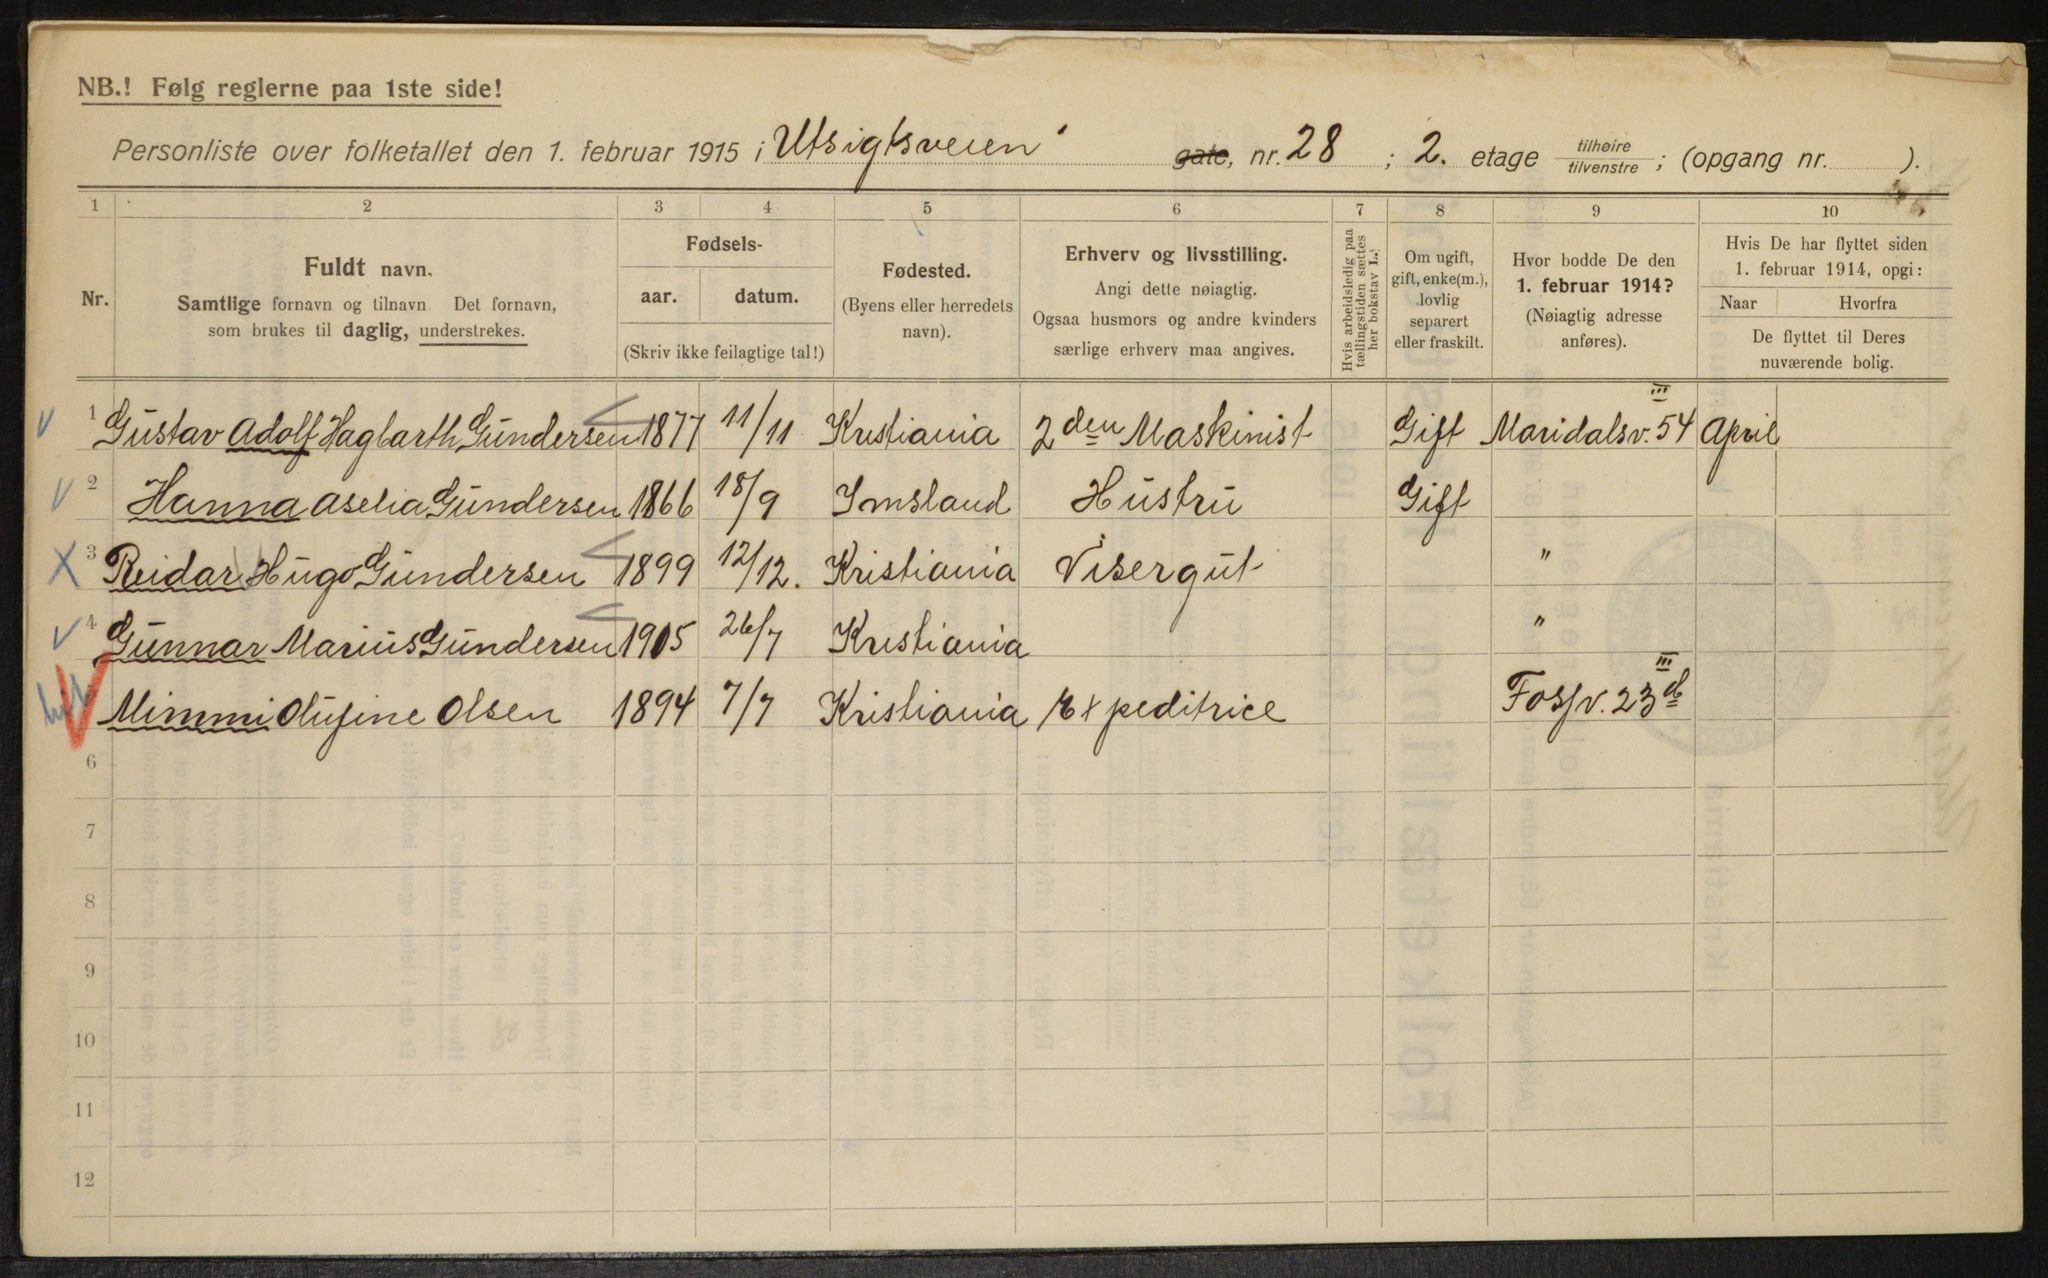 NB.! Følg reglerne paa 1ste side!
Personliste over folketallet den 1. februar 1915 i Utsigtsveien gate, nr. 28 ; 2. etage tilhøire tilvenstre ; (opgang nr. ).
1 2 3 4 5 6 7 8 9 10
Nr.
Fuldt navn.
Samtlige fornavn og tilnavn. Det fornavn,
som brukes til daglig, understrekes.
Fødsels-
aar. datum.
(Skriv ikke feilagtige tal!)
Fødested.
(Byens eller herredets
navn).
Erhverv og livsstilling.
Angi dette nøiagtig.
Ogsaa husmors og andre kvinders
særlige erhverv maa angives.
Hvis arbeidsledig paa
tællingstiden sættes
her bokstav L.
Om ugift,
gift, enke(m.),
lovlig
separert
eller fraskilt.
Hvor bodde De den
1. februar 1914?
(Nøiagtig adresse
anføres).
Hvis De har flyttet siden
1. februar 1914, opgi:
Naar Hvorfra
De flyttet til Deres
nuværende bolig.
1 Gustav Adolf Hagbarth Gundersen 1877 11/11 Kristiania 2den Maskinist Gift Maridalsv. 54 III April
2 Hanna Aselia Gundersen 1866 18/9 Imsland Hustru Gift
3 Reidar Hugo Gundersen 1899 12/12. Kristiania Visergut "
4 Gunnar Marius Gundersen 1905 26/7 Kristiania "
Mimmi Olufine Olsen 1894 7/7 Kristiania Expeditrice Fossv. 23 d III
6
7
8
9
10
11
12